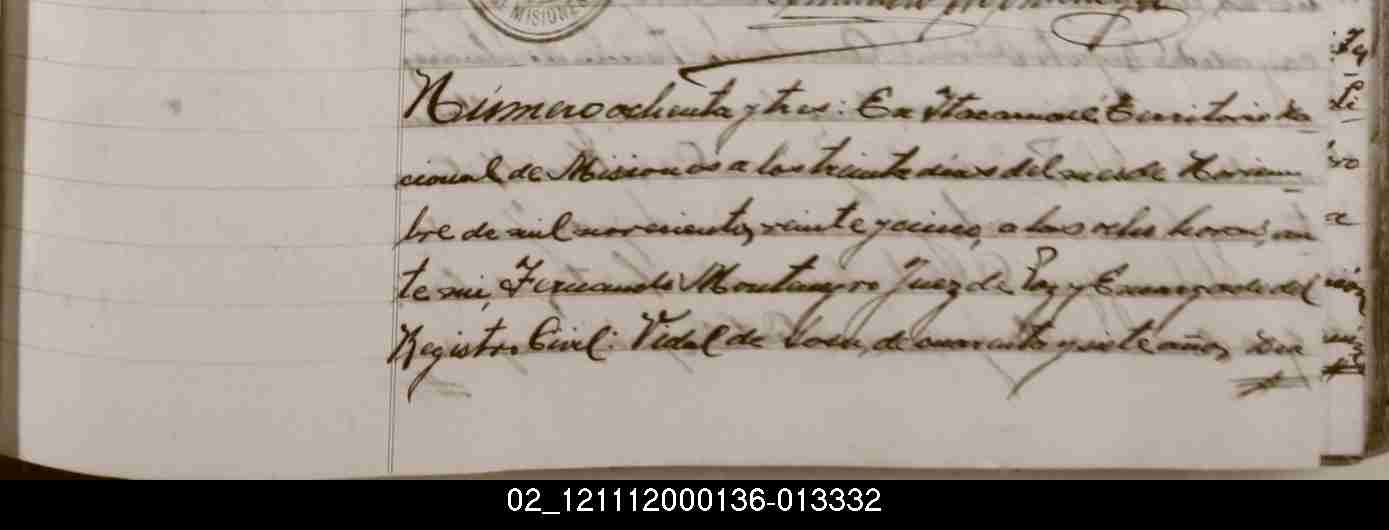 DE MISIONES
Número ochenta y tres: En Itacaruaré Territorio Na
cional de Misiones a los treinta dias del mes de Noviem
bre de mil novecientos veinte y cinco, a las ocho horas, an
te mi, Fernando Montenegro Juez de Paz y Encargado del
Registro Civil: Vidal de Souza, de cuarenta y siete años
02_121112000136-013332